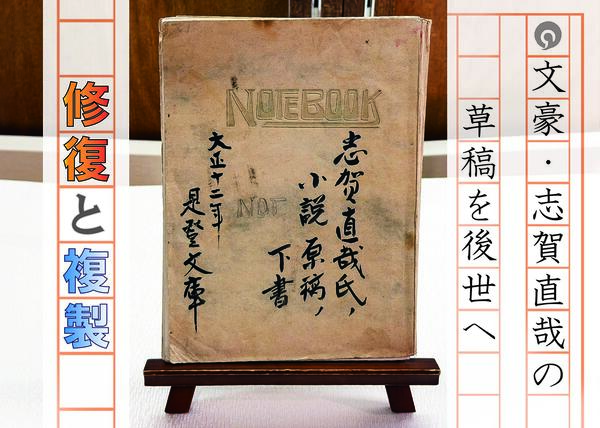 文豪・志賀直哉の
草稿を後世へ
NOTEBOOK
志賀直哉氏,
小説原稿,
下書
NOT
大正十二年
文庫
修復と複製